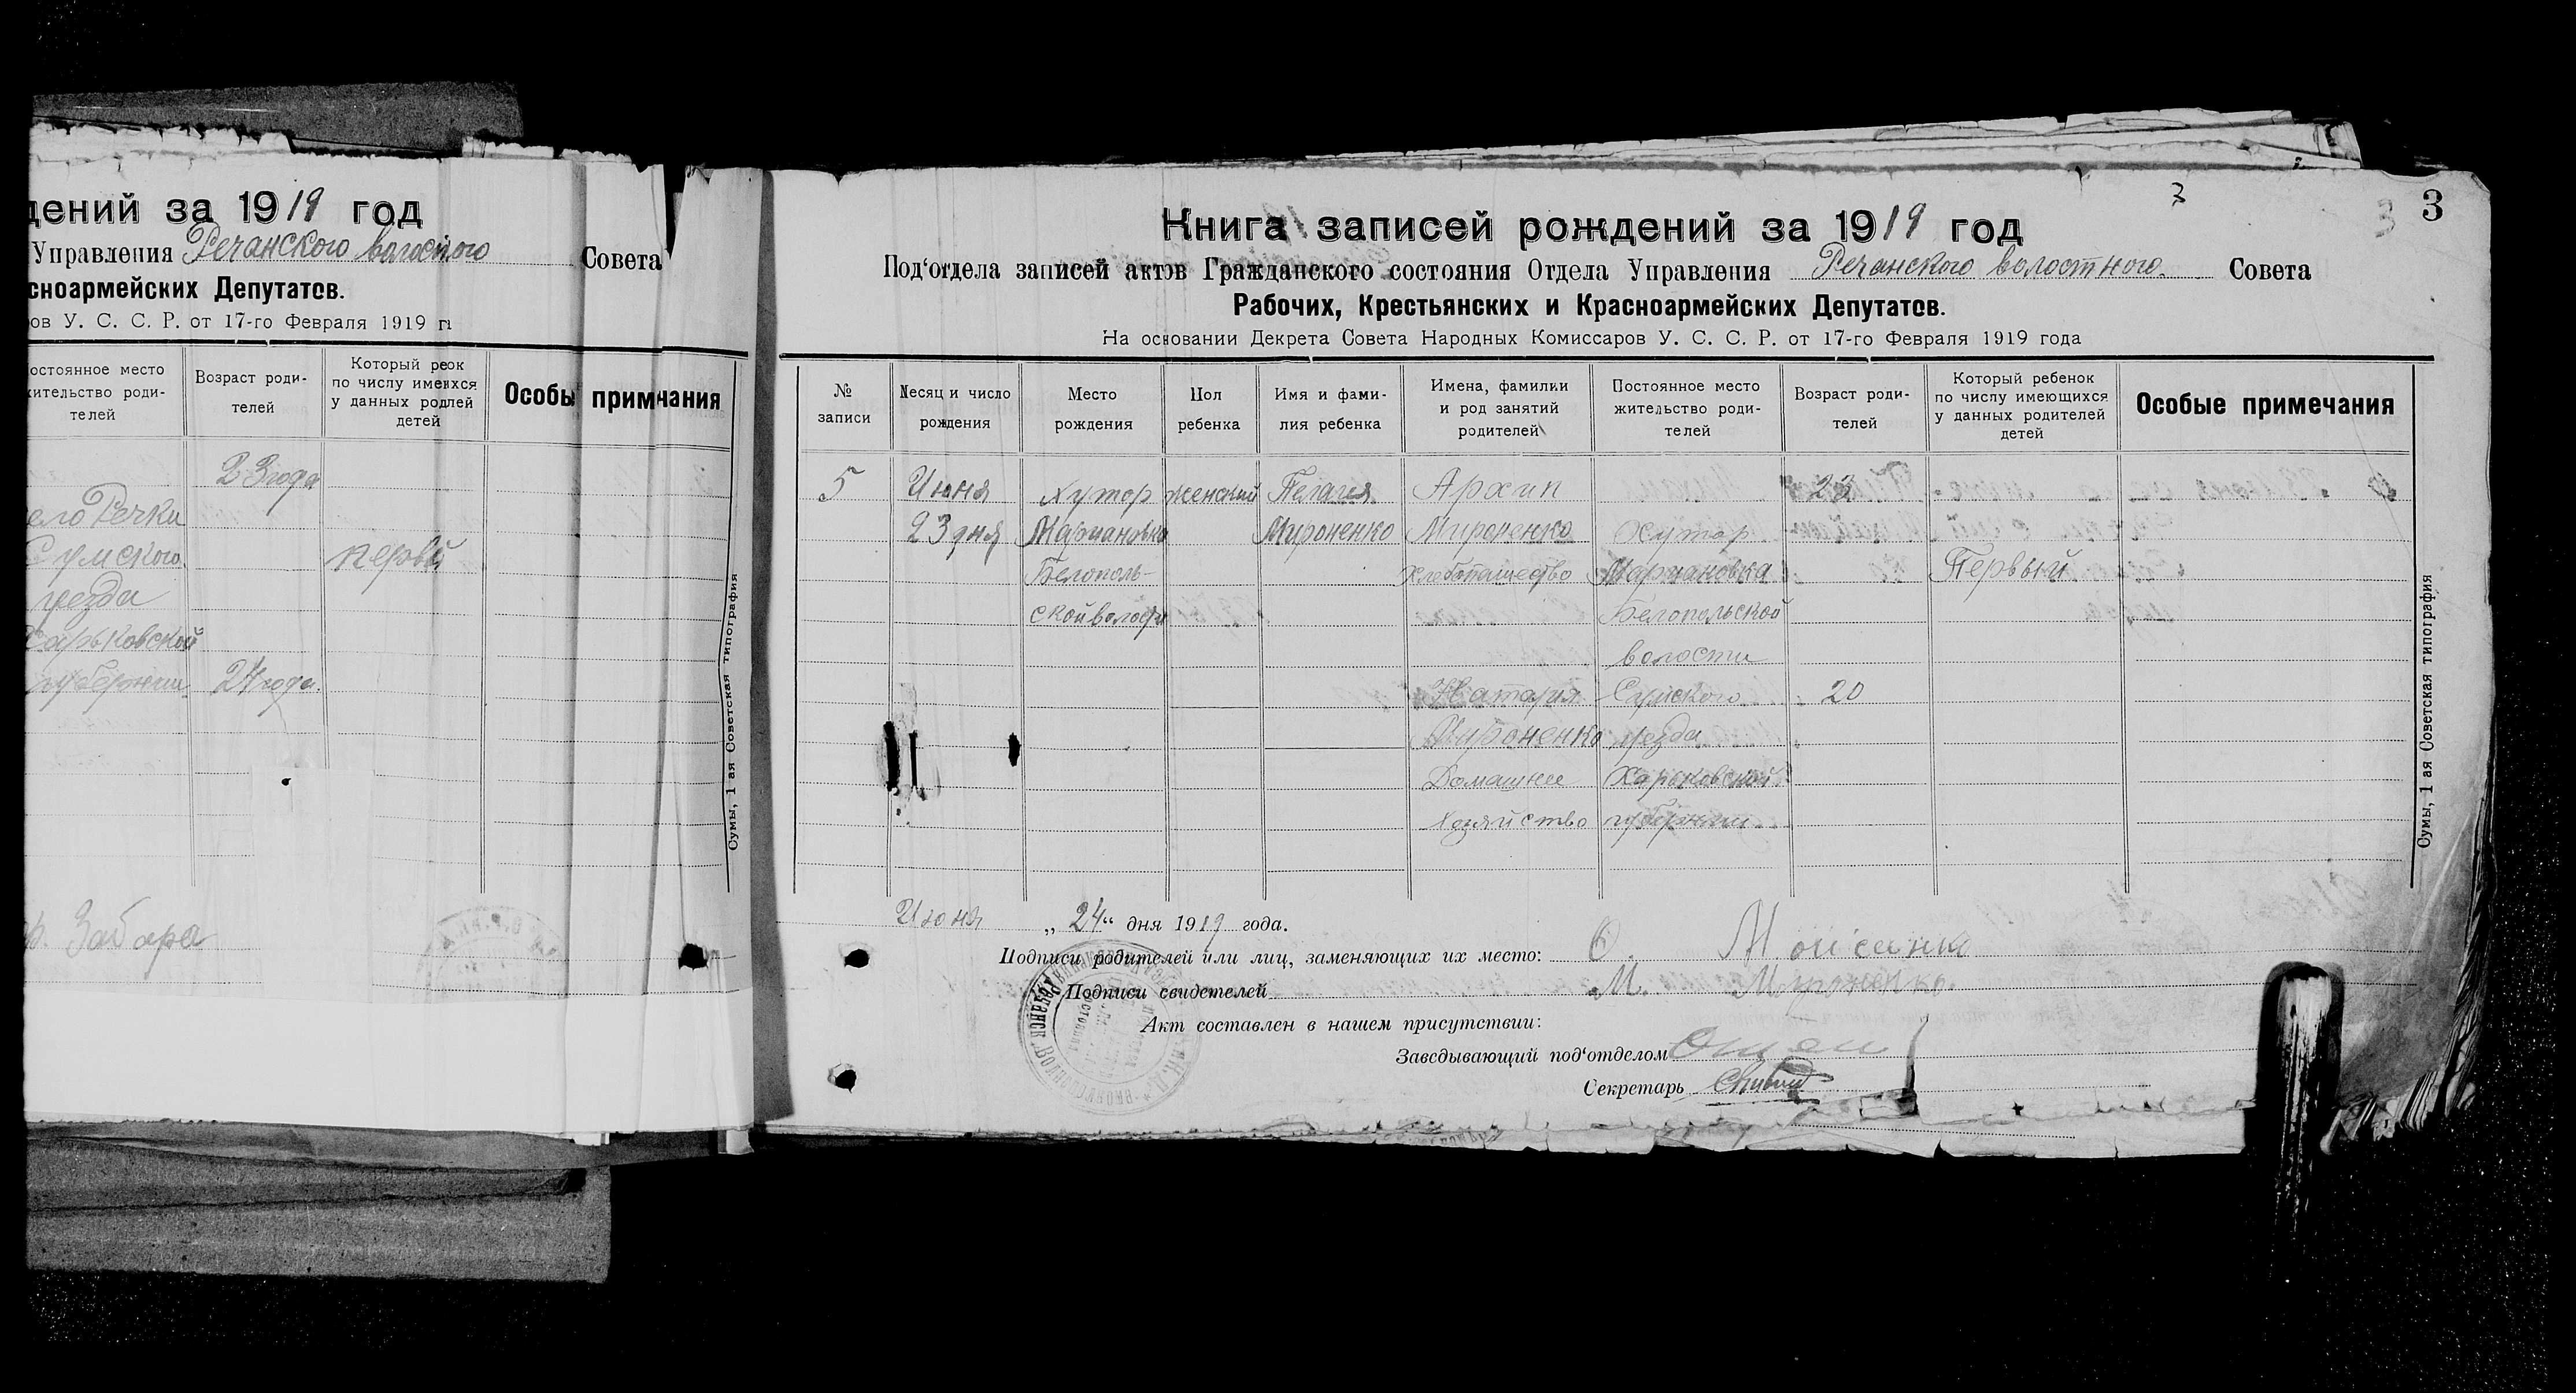 дений за 1919 год
Управления Речанского волосного Совета
сноармейских Депутатов.
ов У. С. С. Р. от 17-го Февраля 1919 г
остоянное место
жительство роди-
телей
Возраст роди-
телей
Который реок
по числу имеихся
у данных родлей
детей
Особы примчания
23 года
ело Речки
Сумского
уезда
Харьковской
губернии
первый
24 года.
Забара
Сумы, 1 ая Советская типография
3
3
3
Книга записей рождений за 1919 год
Под‘отдела записей актов Гражданского состояния Отдела Управления Речанского волостного. Совета
Рабочих, Крестьянских и Красноармейских Депутатов.
На основании Декрета Совета Народных Комиссаров У. С. С. Р. от 17-го Февраля 1919 года
№
записи
Месяц и число
рождения
Место
рождения
Пол
ребенка
Имя и фами-
лия ребенка
Имена, фамилии
и род занятий
родителей
Постоянное место
жительство роди-
телей
Возраст роди-
телей
Который ребенок
по числу имеющихся
у данных родителей
детей
Особые примечания
5
Июня
23 дня
Хутор
Марчановка
Белополь-
ской волости
женский
Пелагия
Мироненко
Архип
Мироненко
хлебопашество
Наталия
Мироненко
Домашнее
хозяйство
Хутор
Марчановка
Белопольской
волости
Сумского
уезда
Харьковской
губернии
23
20
Первый
Сумы, 1 ая Советская типография
Июня „24“ дня 1919 года.
Подписи родителей или лиц, заменяющих их место:
Подписи свидетелей М. Мироненко.
Акт составлен в нашем присутствии:
Заведывающий под‘отделом
Секретарь